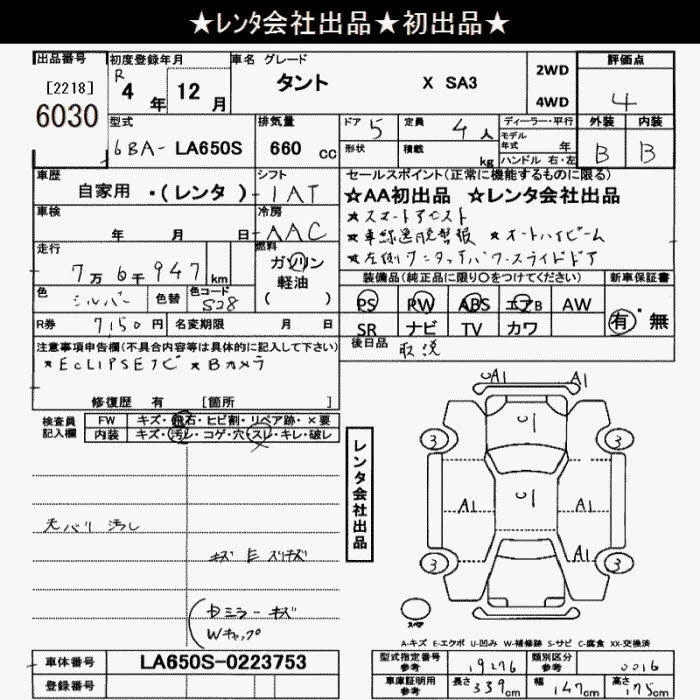 ★レンタ会社出品★初出品★
出品番号 初度登録年月 車名 グレード 評価点
[2218] R 4年 12月 タント X SA3 2WD 4
6030 4WD
型式 排気量 ドア 5 定員 4人 ディーラー・平行 外装 内装
6BA- LA650S 660 cc 形状 積載 kg モデル年式 年 B B
ハンドル 右・左
車歴 シフト セールスポイント(正常に機能するものに限る)
自家用 ・(レンタ) IAT ☆AA初出品 ☆レンタ会社出品
車検 年 月 日 冷房 AAC ★スマートアシスト
★車線逸脱警報 ★オートハイビーム
走行 燃料 ★左側ワンタッチパワースライドドア
7万6千947km ガソリン 装備品(純正品に限り○をつけてください) 新車保証書
軽油
色 シルバー 色替 色コード S28 ( ) PS PW ABS エアB AW 有・無
R券 7,150円 名変期限 月 日 SR ナビ TV カワ
注意事項申告欄(不具合内容等は具体的に記入して下さい) 後日品 取説
★ECLIPSEナビ ★Bカメラ
修復歴 有 [箇所 ]
検査員記入欄 FW キズ・飛石・ヒビ割・リペア跡・×要
内装 キズ・汚レ・コゲ・穴・スレ・キレ・破レ
レンタ会社出品
A1 A1
U1
3 3
A1 U1 A1
A1
3 3
天バリ 汚レ
キズ E スリキズ
中ミラーキズ
Wキャップ
スペア
A-キズ E-エクボ U-凹み W-補修跡 S-サビ C-腐食 XX-交換済
車体番号 LA650S-0223753 型式指定番号参考 19276 類別区分参考 0016
登録番号 車庫証明用参考 長さ 339cm 幅 147cm 高さ 175cm